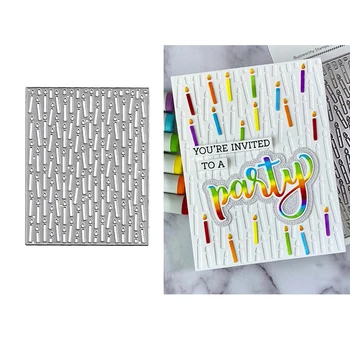 YOU'RE INVITED
TO A
party